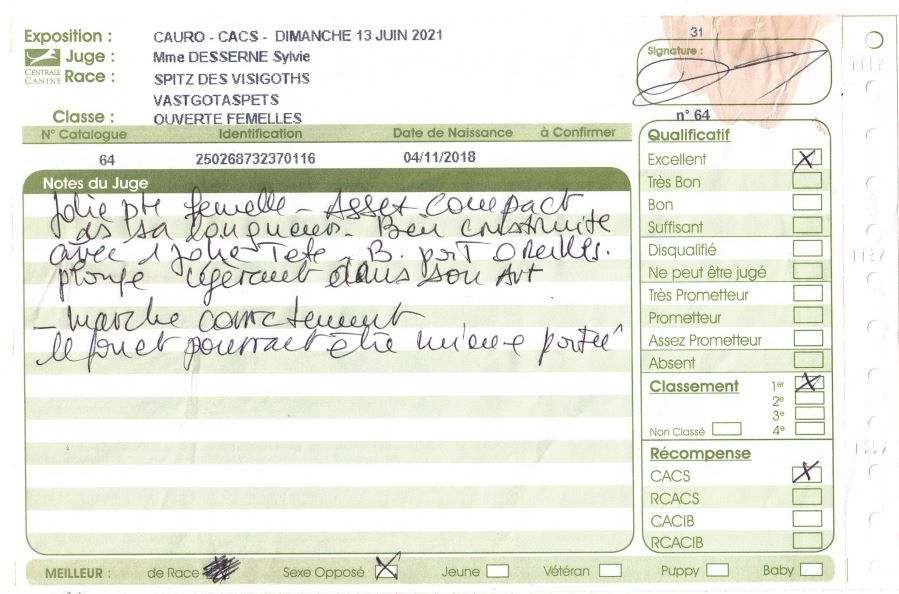 Exposition : CAURO - CACS - DIMANCHE 13 JUIN 2021
Juge : Mme DESSERNE Sylvie
CENTRALE CANINE
Race : SPITZ DES VISIGOTHS
VASTGOTASPETS
Classe : OUVERTE FEMELLES
31
Signature :
n° 64
N° Catalogue Identification Date de Naissance à Confirmer
64 250268732370116 04/11/2018
Notes du Juge
Jolie pte femelle - Assez compact
ds sa longueur. Bien construite
avec 1 Jolie Tete - B. port Oreilles.
plonge légèrement dans son Avt
- Marche correctement
le fouet pourrait être mieux porté
Qualificatif
Excellent X
Très Bon
Bon
Suffisant
Disqualifié
Ne peut être jugé
Très Prometteur
Prometteur
Assez Prometteur
Absent
Classement 1er X
2e
3e
Non Classé 4e
Récompense
CACS X
RCACS
CACIB
RCACIB
MEILLEUR : de Race Sexe Opposé X Jeune Vétéran Puppy Baby